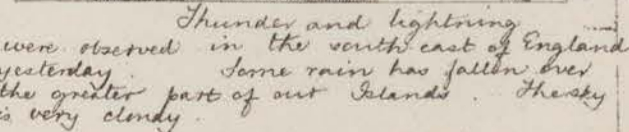 Thunder and lightning
were observed in the south east of England
yesterday. Some rain has fallen over
the greater part of our Islands. The sky
is very cloudy.